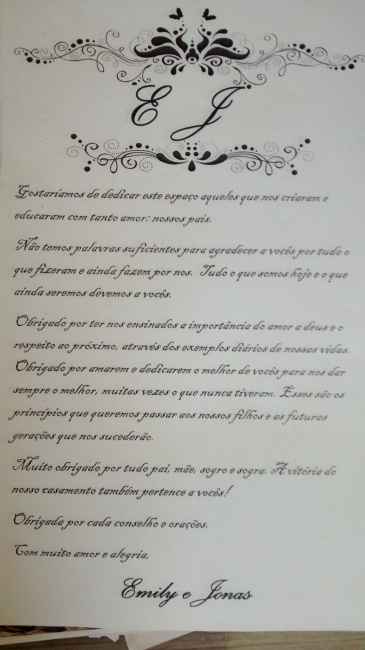 E J
Gostaríamos de dedicar este espaço aqueles que nos criaram e
educaram com tanto amor: nossos pais.
Não temos palavras suficientes para agradecer a vocês por tudo o
que fizeram e ainda fazem por nos. Tudo o que somos hoje e o que
ainda seremos devemos a vocês.
Obrigado por ter nos ensinados a importância do amor a deus e o
respeito ao próximo, através dos exemplos diários de nossas vidas.
Obrigado por amarem e dedicarem o melhor de vocês para nos dar
sempre o melhor, muitas vezes o que nunca tiveram. Esses são os
princípios que queremos passar aos nossos filhos e as futuras
gerações que nos sucederão.
Muito obrigado por tudo pai, mãe, sogro e sogra. A vitória do
nosso casamento também pertence a vocês!
Obrigada por cada conselho e orações.
Com muito amor e alegria,
Emily e Jonas